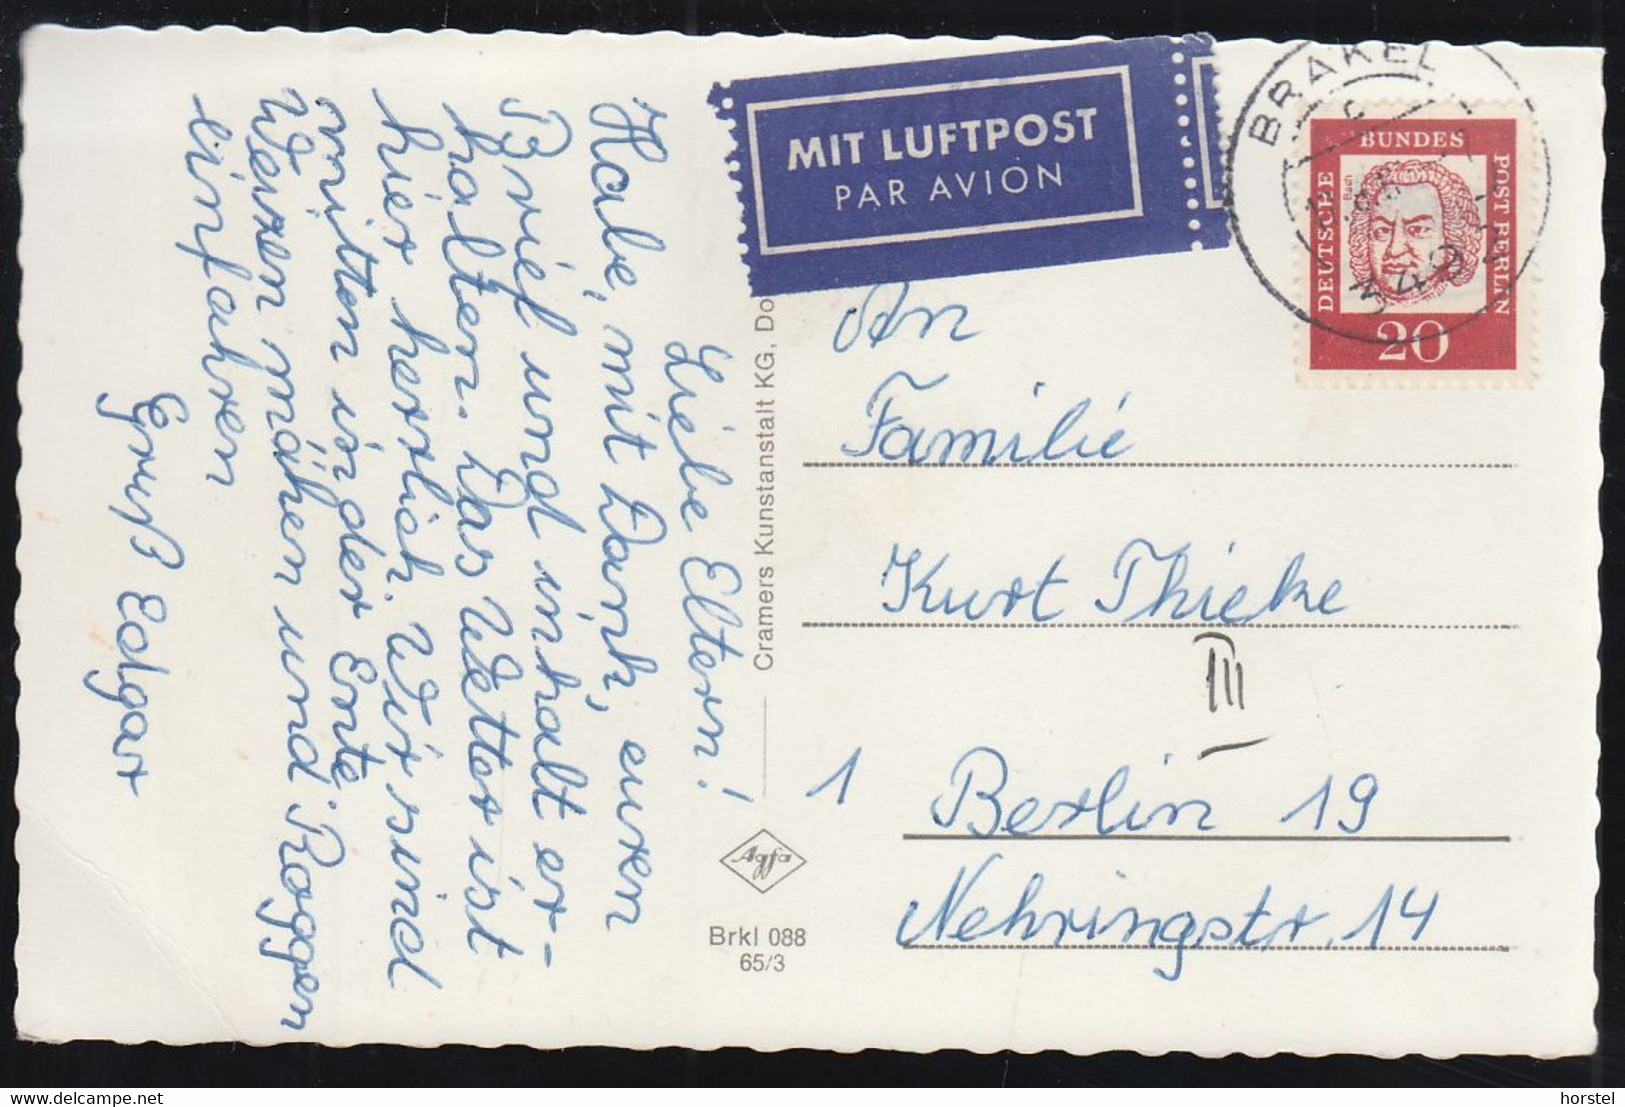 Liebe Eltern!
Habe, mit Dank, euren
Brief und inhalt er-
halten. Das Wetter ist
hier herrlich. Wir sind
mitten in der Ernte
Weizen mähen und Roggen
einfahren
Gruß Edgar
Cramers Kunstanstalt KG, Do
Agfa
Brkl 088
65/3
MIT LUFTPOST
PAR AVION
BRAKEL
c
DEUTSCHE
BUNDES
POST BERLIN
Bach
20
An
Familie
Kurt Thieke
III
1 Berlin 19
Nehringstr. 14
horstel